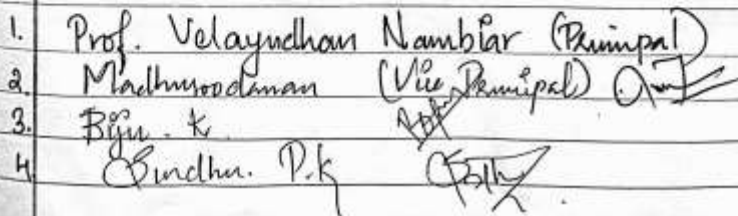 1. Prof. Velayudhan Nambiar (Principal)
2. Madhusoodanan (Vice Principal)
3. Biju. K.
4 Sindhu. P.K